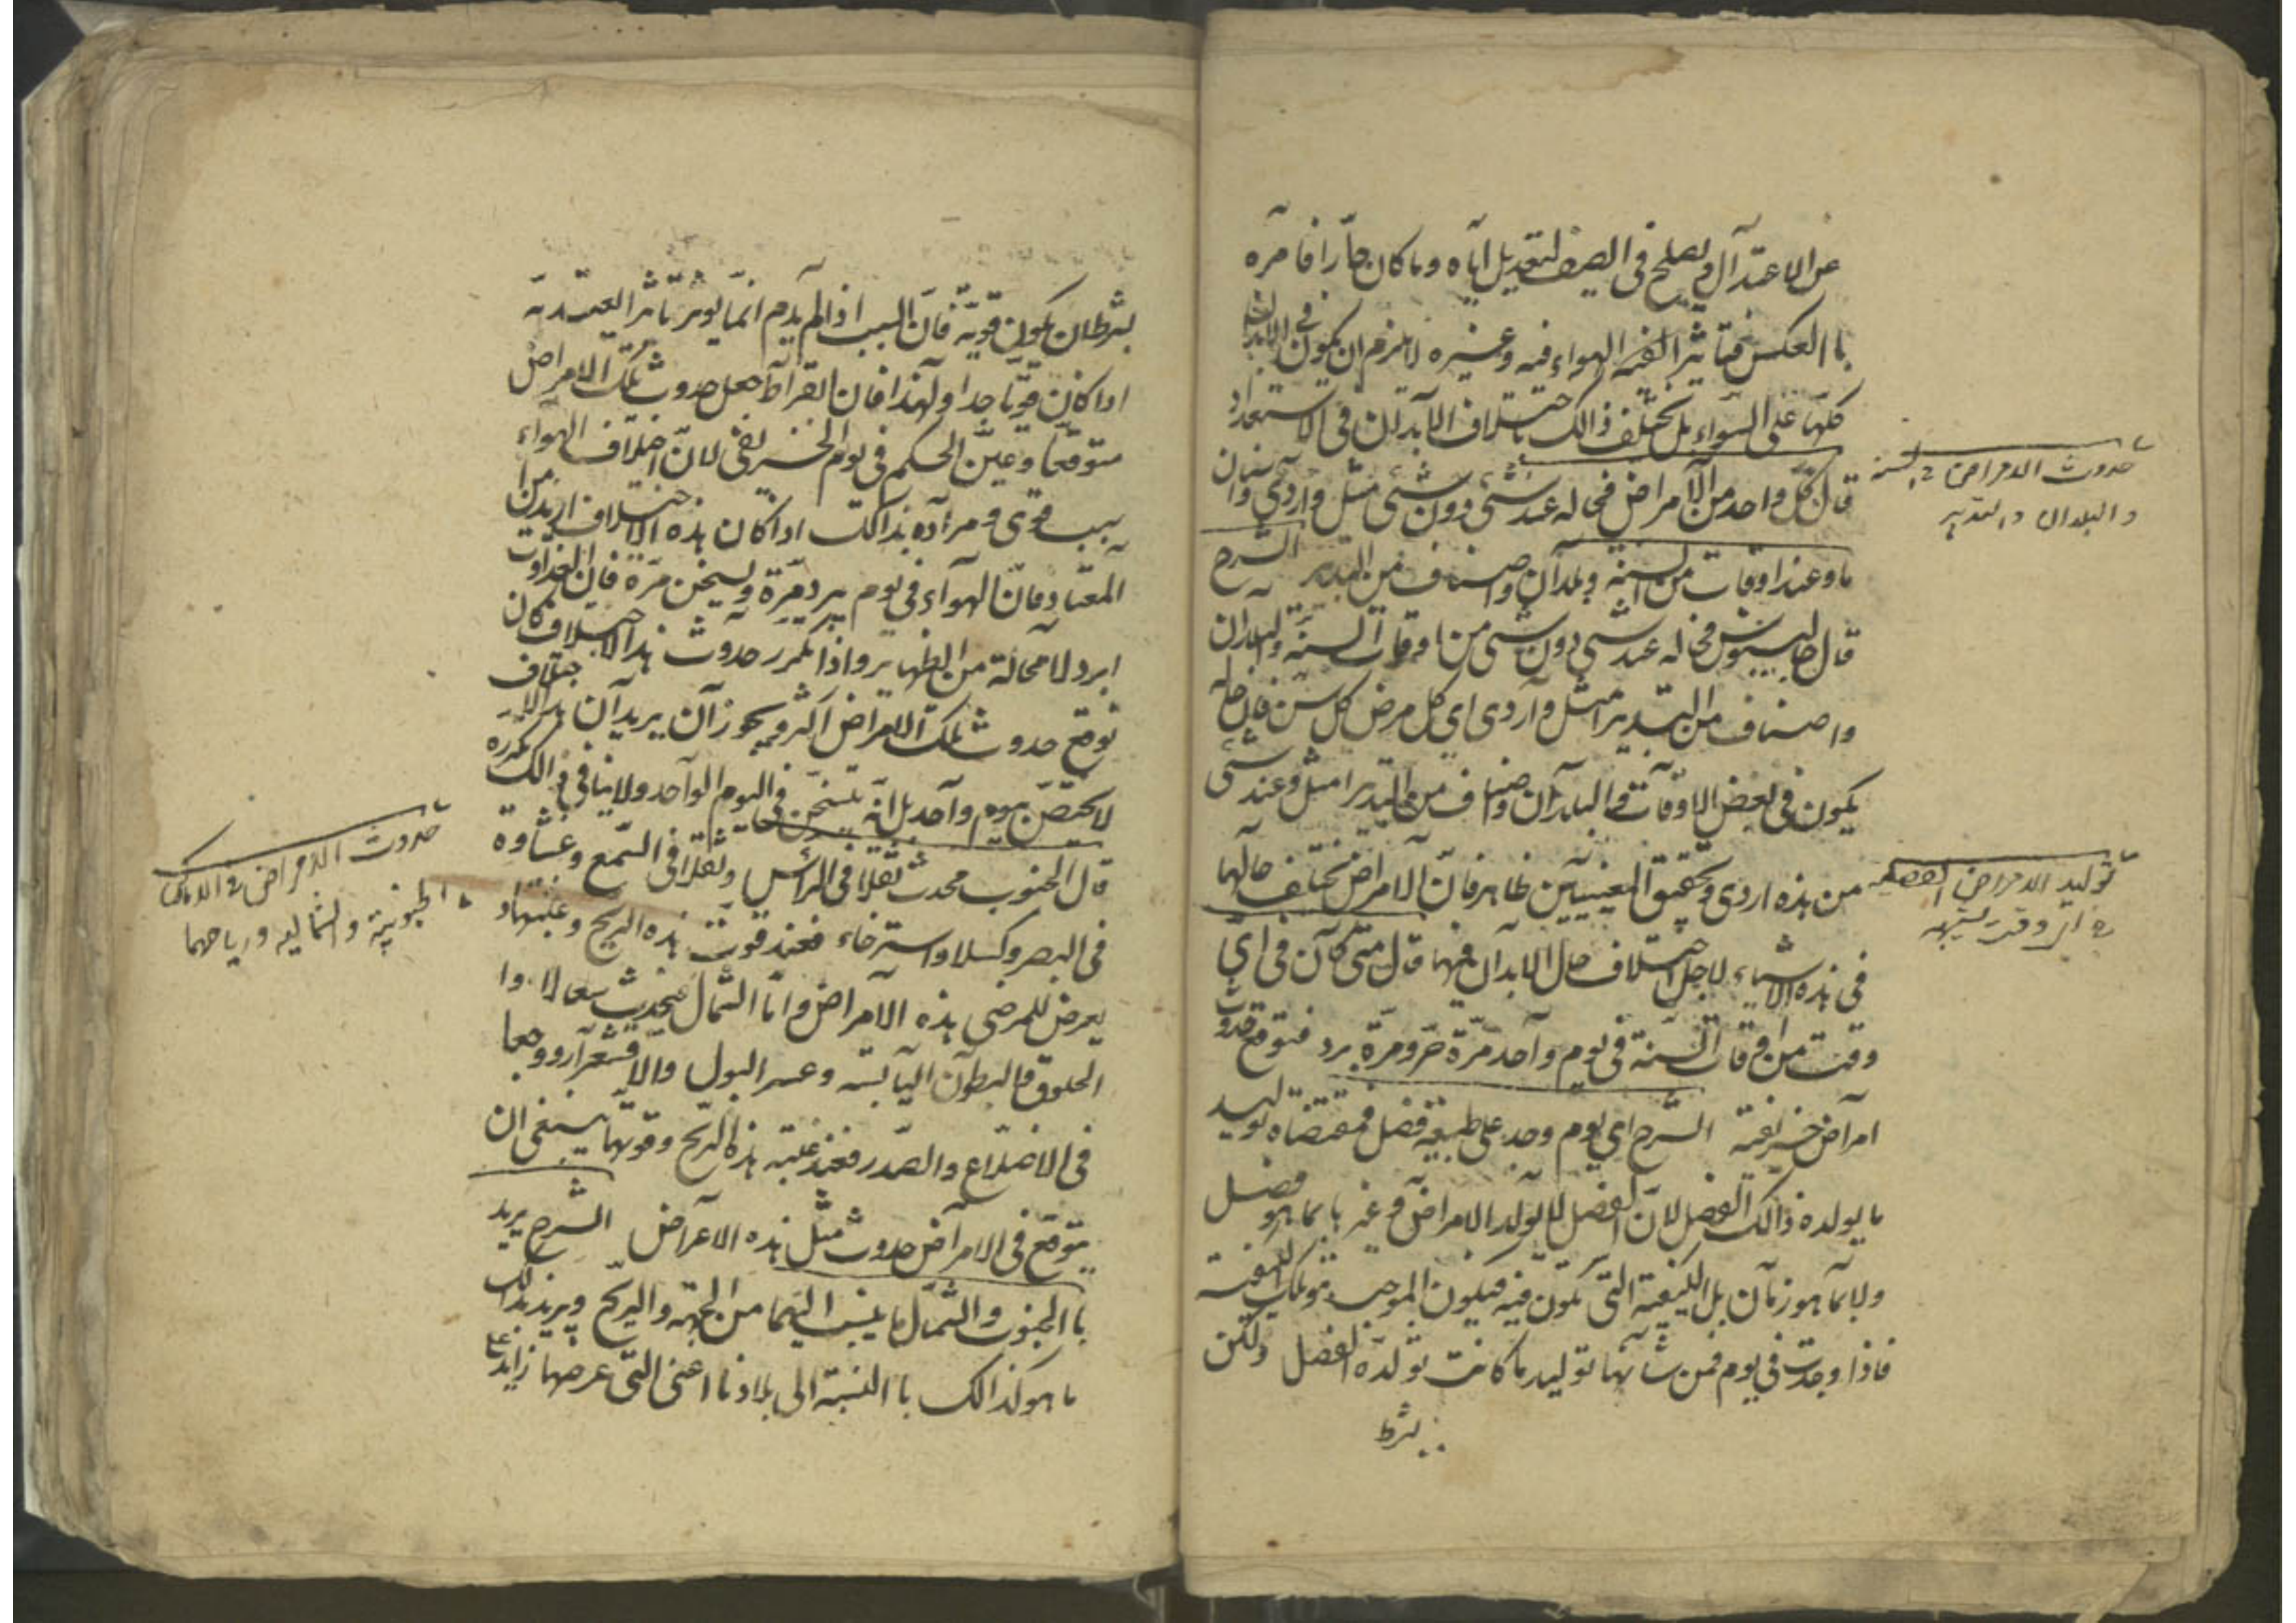 عن الاعتدال ويصلح في الصيف لتعديل اياه وما كان حارا فامره
با العكس فتاثير الفه الهواء فيه وغيره لا يلزم ان يكون في الابدان
كلها على السواء بل يختلف ذالك باختلاف الابدان في الاستعداد
قال كل واحد من الامراض فحاله عند شئ دون شئ مثل واردي واسنان
ما وعند اوقات من السنة وبلدان واصناف من التدبير الشرح
قال جالينوس فحاله عند شئ دون شئ من اوقات السنة والبلدان
واصناف من التدبير امثل واردى اي كل مرض كل سن فان حاله
يكون في بعض الاوقات والبلدان واصناف من التدبير امثل وعند شئ
من هذه اردى وتحقيق المعنيين ظاهر فان الامراض تختلف حالها
في هذه الاشياء لاجل اختلاف حال الابدان فيها قال متى كان في اي
وقت من اوقات السنة في يوم واحد مرة حر ومرة برد فتوقع حدوث
امراض خريفية الشرح اي يوم وجد على طبيعة فصل فمقتضاه توليد
ما يولده ذالك الفصل لان الفصل لا يولد الامراض بما هو فصل
ولا بما هو زمان بل الكيفية التي تكون فيه فيكون الموجب هو تلك الكيفية
فاذا وجدت في يوم فمن شانها توليد ما كانت تولده الفصل ولكن
بشرط
حدوث الامراض في السنة
والبلدان والتدبير
توليد الامراض الفصلية
في اي وقت
بشرط ان يكون قوية فان السبب اذا لم يدم انما يوثر تاثيرا يعتد به
اذا كان قويا جدا ولهذا فان القراط جعل حدوث تلك الامراض
متوقعا وعين الحكم في يوم الخريفي لان اختلاف الهواء
سبب قوي ومراده بذالك اذا كان هذه الاختلاف ازيد من
المعتاد فان الهواء في يوم يبرد مرة ويسخن مرة فان الغدوات
ابرد لا محالة من الظهاير واذا تكرر حدوث هذا الاختلاف كان
توقع حدوث تلك الامراض اكثر ويجوز ان يريد ان هذا الاختلاف
لا يختص بيوم واحد بل انه يتسخن في اليوم الواحد ولا ينافي ذالك تكرره
قال الجنوب يحدث ثقلا في الراس وثقلا في السمع وغشاوة
في البصر وكسلا واسترخاء فعند قوت هذه الريح وغلبتها
يعرض للمرضى هذه الامراض واما الشمال فيحدث سعالا
الحلوق والبطون اليابسة وعسر البول والاقشعرار ووجعا
في الاضلاع والصدر فعند غلبة هذه الريح وقوتها ينبغي ان
يتوقع في الامراض حدوث مثل هذه الاعراض الشرح يريد
با الجنوب والشمال ما ينسب اليهما من الجهة والريح ويريد بذالك
ما هو كذالك با النسبة الى بلادنا اعني التي عرضها زايد على
حدوث الامراض في الاماكن
الجنوبية والشمالية ورياحهما